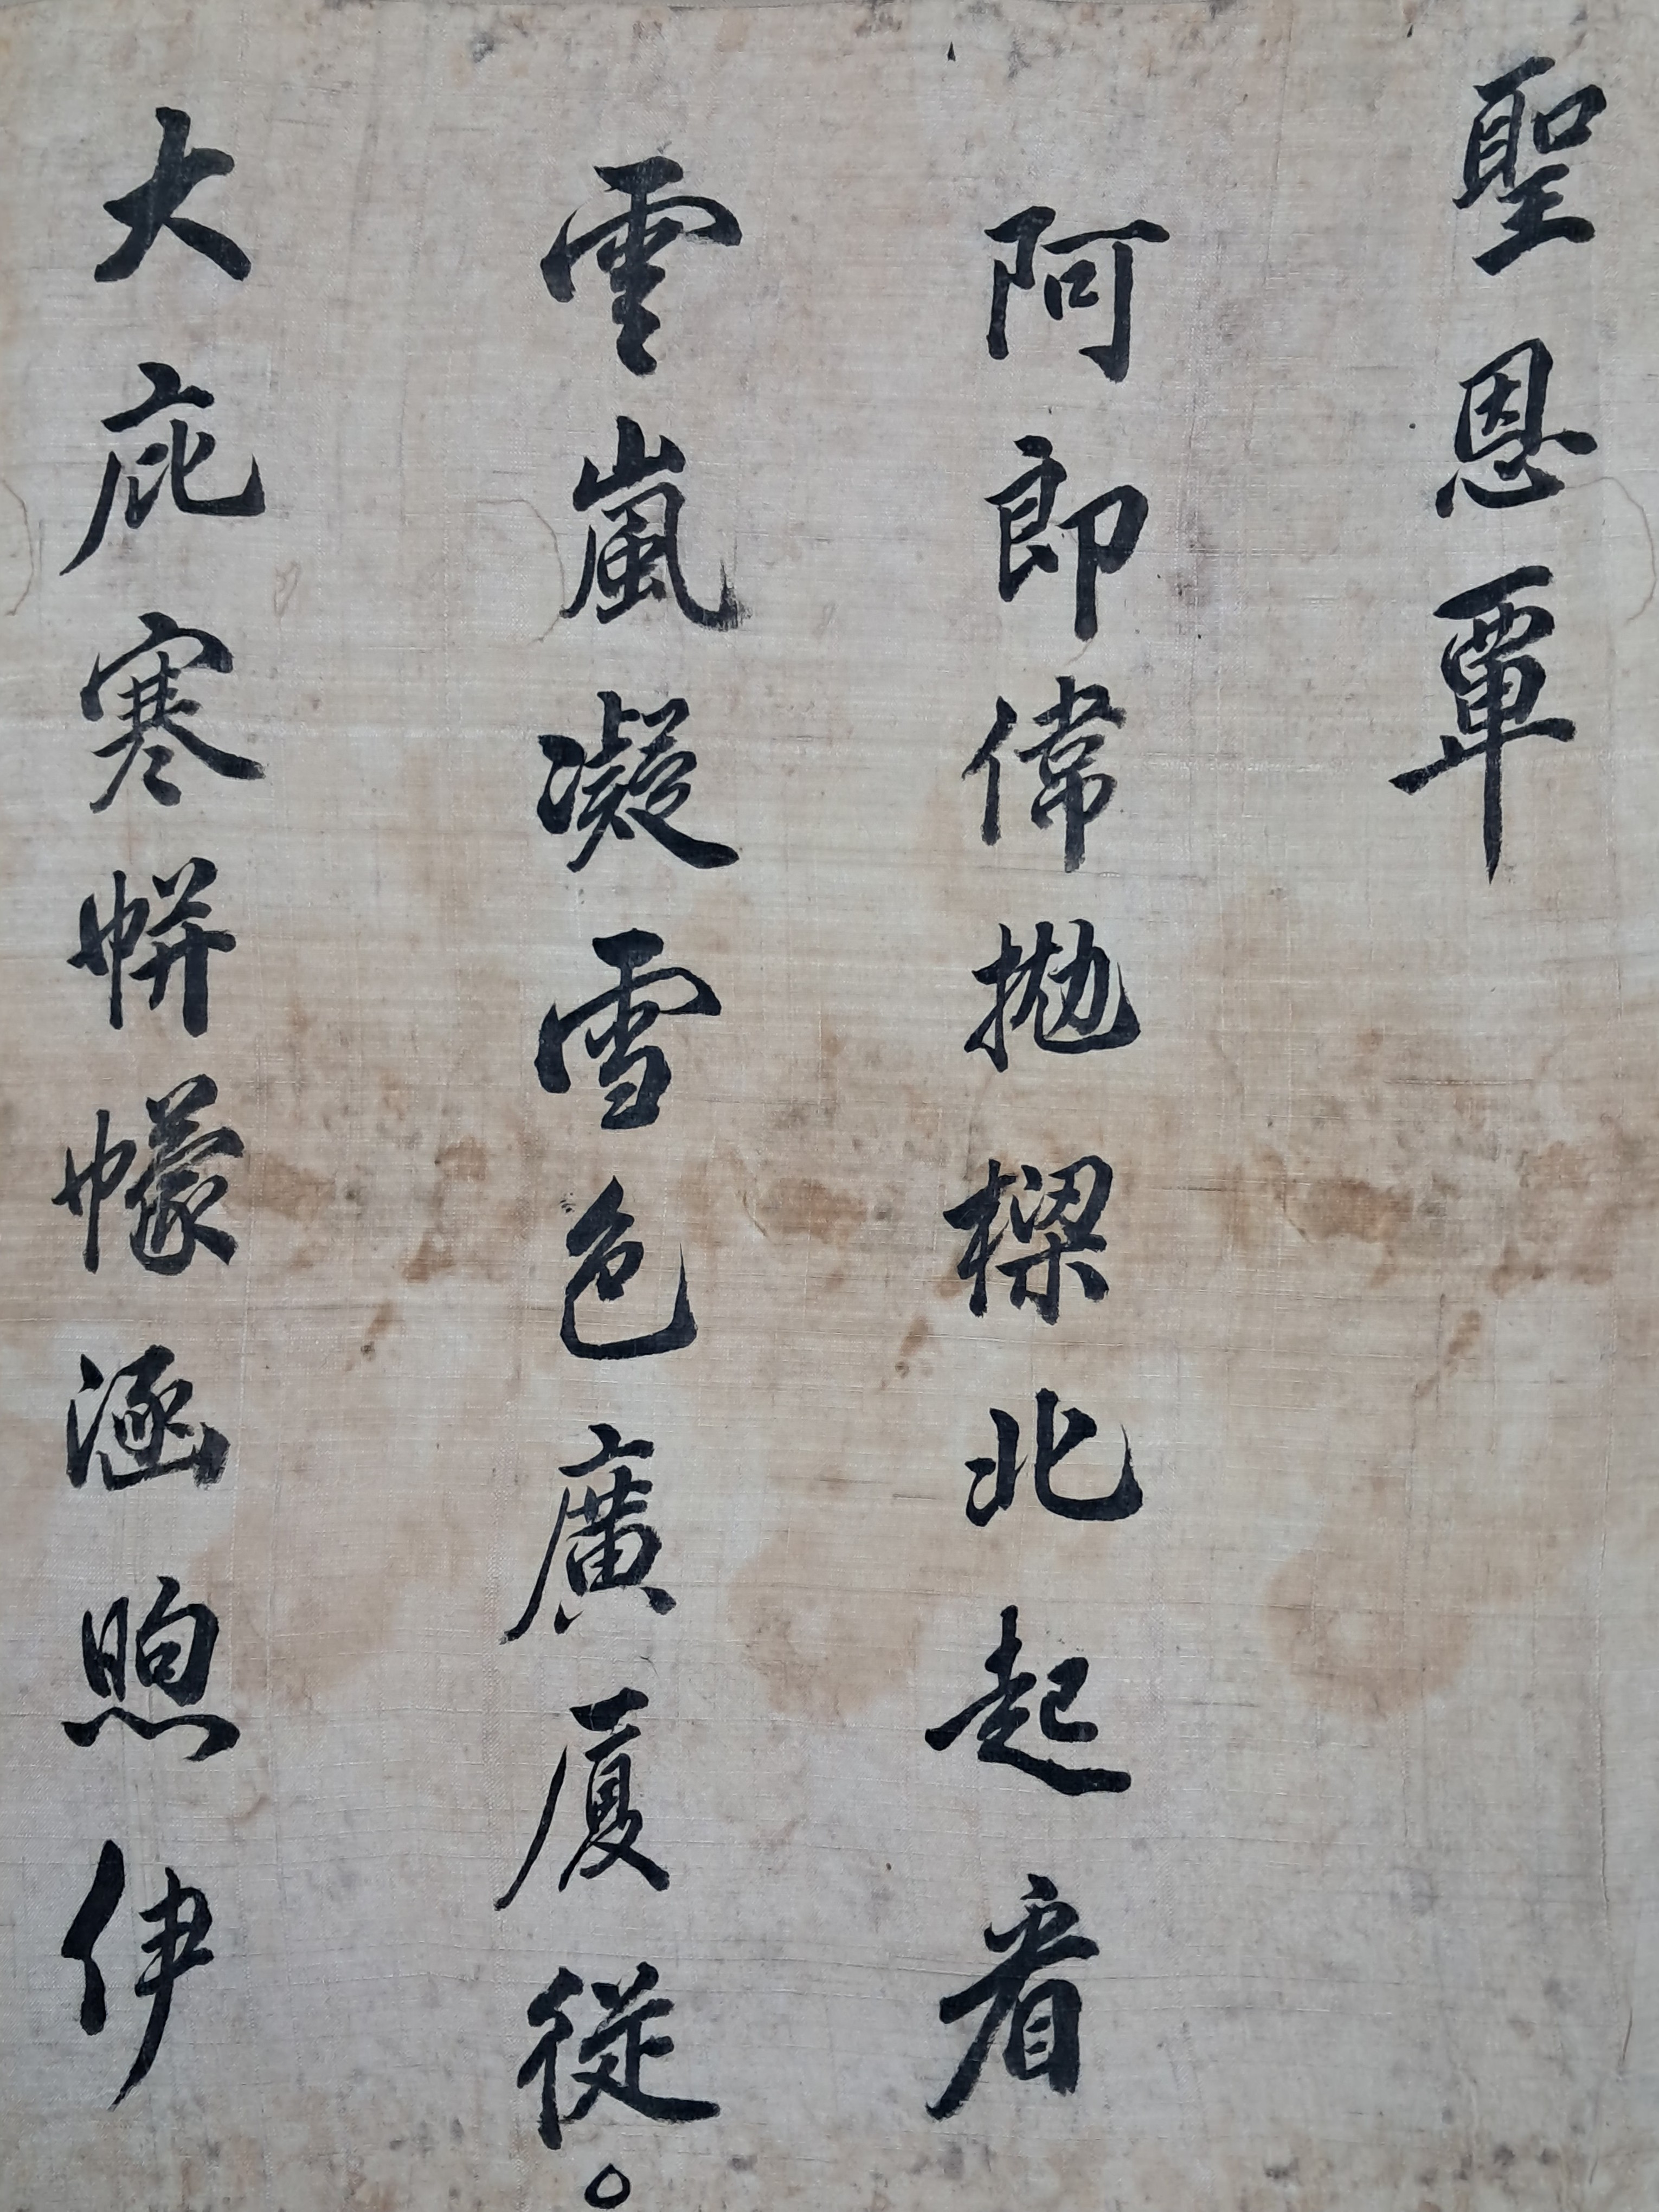 聖恩覃
阿郎偉拋樑北起看
雲嵐凝雪色廣厦從。
大庇寒帡幪涵煦伊